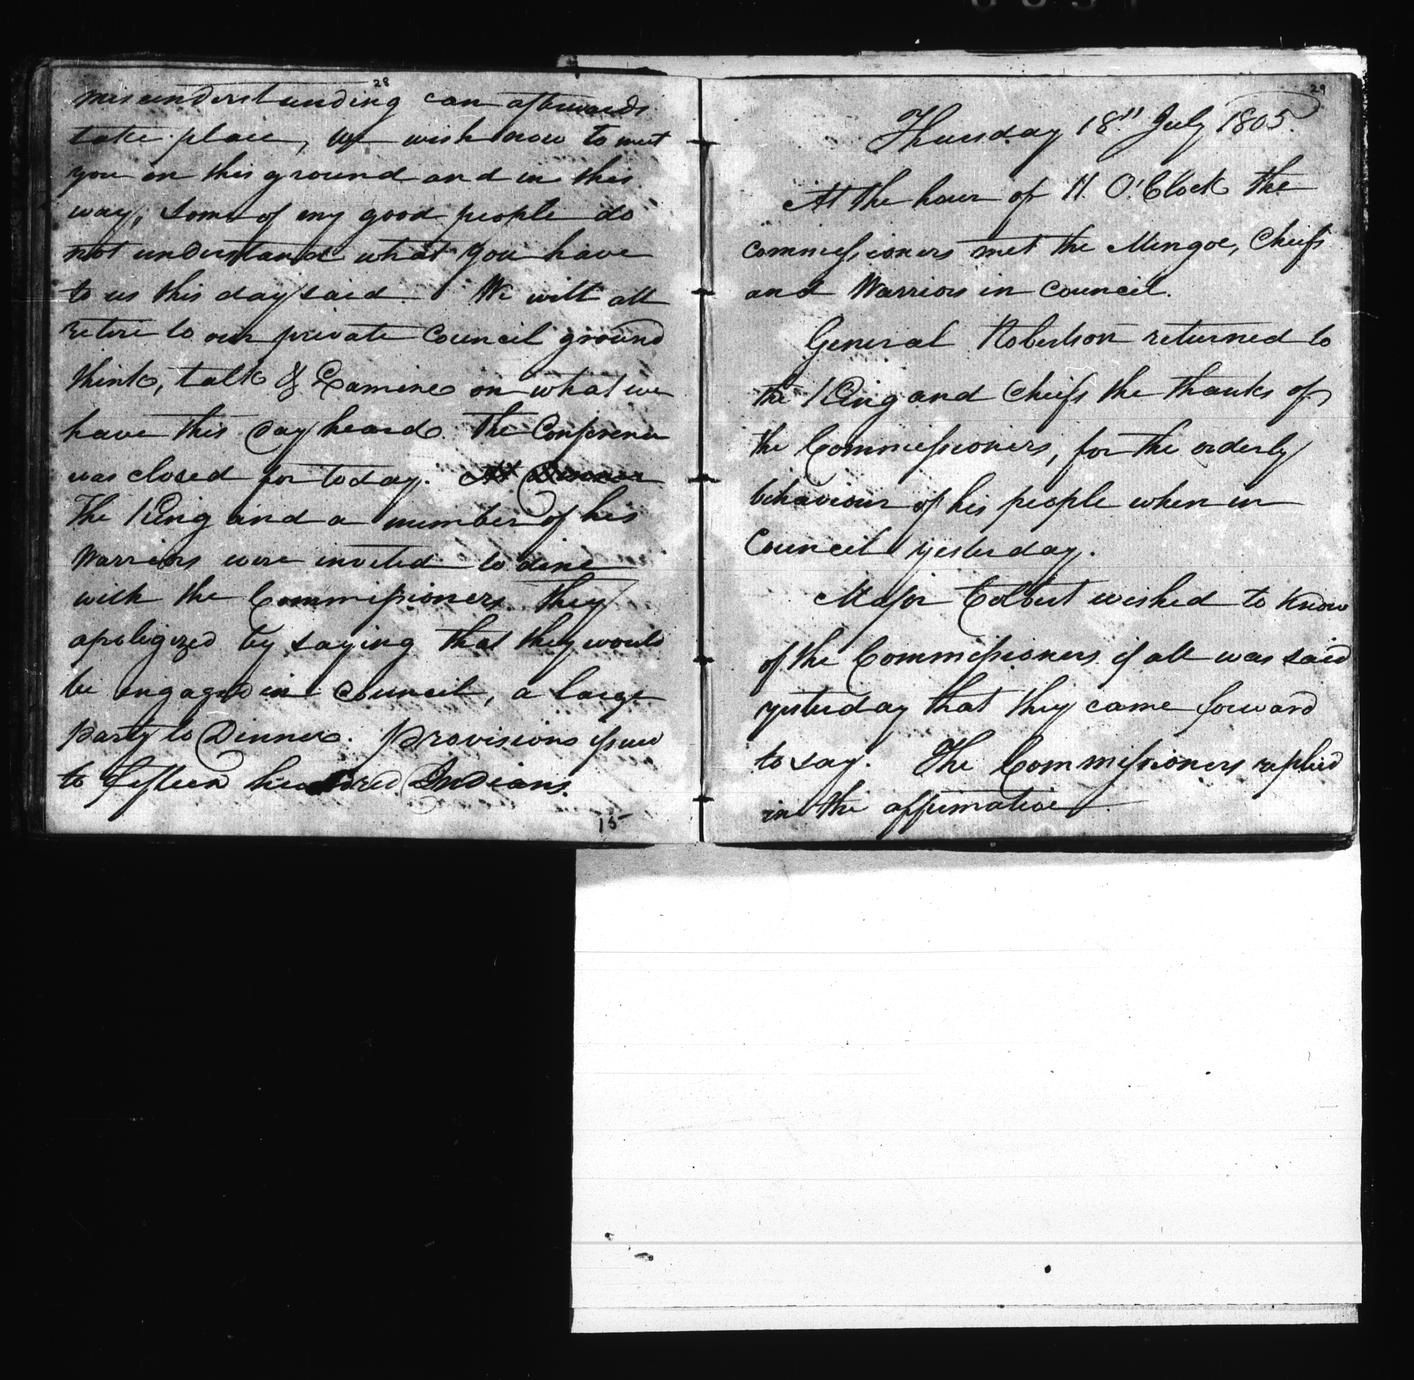 28
misunderstanding can afterwards
take place, We wish now to meet
you on this ground and in this
way, Some of my good people do
not understand what you have
to us this day said. We will all
retire to our private Council ground
think, talk & Examine on what we
have this day heard. The Conference
was closed for today. At Dinner
The King and a number of his
Warriors were invited to dine
with the Commissioners they
apologized by saying that they would
be engaged in Council, a large
party to Dinner. Provisions issued
to fifteen hundred Indians.
15
29
Thursday 18th July 1805.
At the hour of 11. O'Clock the
commissioners met the Mingoe, Chiefs
and Warriors in Council.
General Robertson returned to
the King and Chiefs the thanks of
the Commissioners, for the orderly
behaviour of his people when in
Council yesterday.
Major Colbert wished to know
of the Commissioners if all was said
yesterday that they came forward
to say. The Commissioners replied
in the affirmative